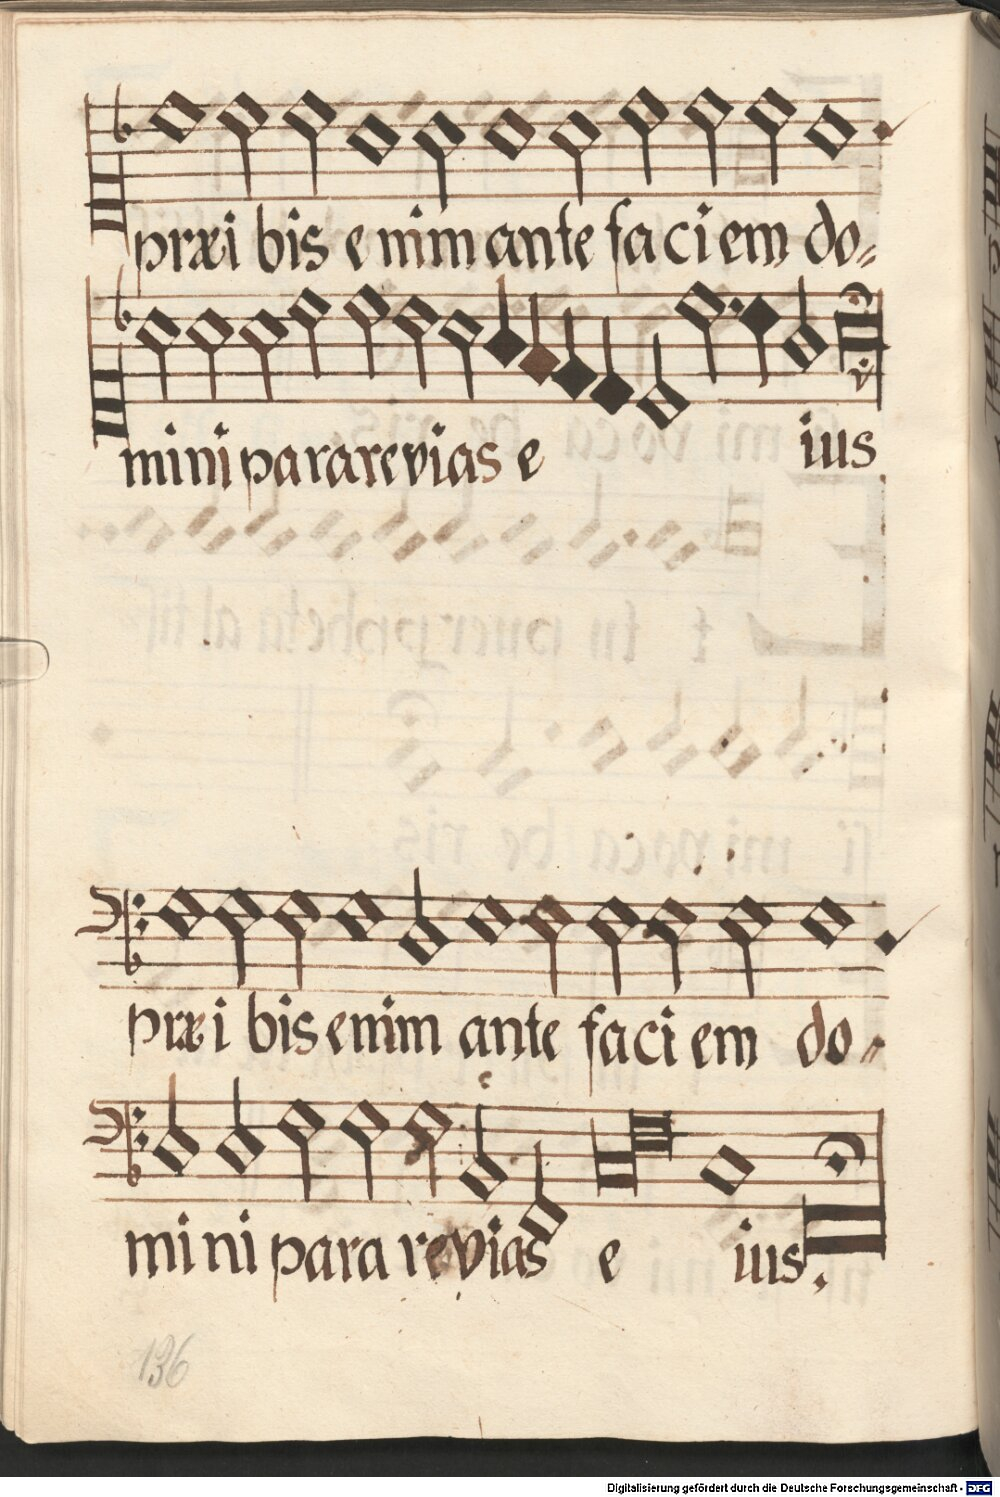 præi bis enim ante faciem do-
mini parare vias e ius
præi bis enim ante faciem do-
mini parare vias e ius.
136
Digitalisierung gefördert durch die Deutsche Forschungsgemeinschaft - DFG